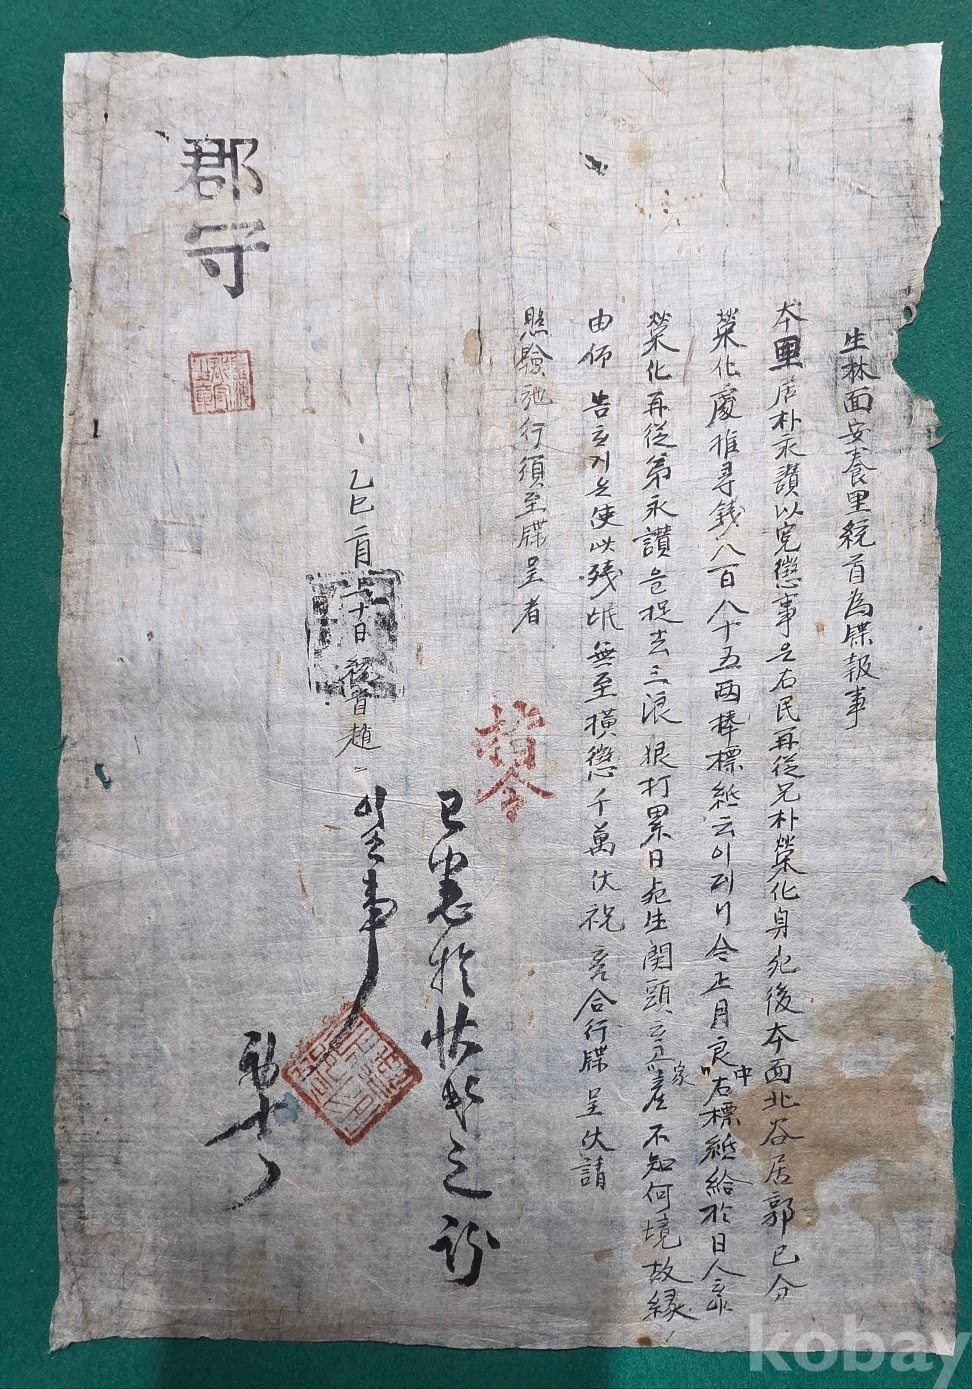 生林面安養里統首為牒報事
本里居朴永讃以寃徵事是右民再從兄朴榮化身死後本面北谷居郭巳分
榮化處推尋錢八百八十五兩捧標紙云이러니今正月良中右標紙給於日人
榮化再從弟永讃捉去三浪狼打累日死生関頭家産不知何境故緣
由仰告使以殘氓無至橫徵千萬伏祝合行牒呈伏請
照驗施行須至牒呈者
指令
已悉於狀民之訴
乙巳二月二十日統首趙
事
郡守
kobay